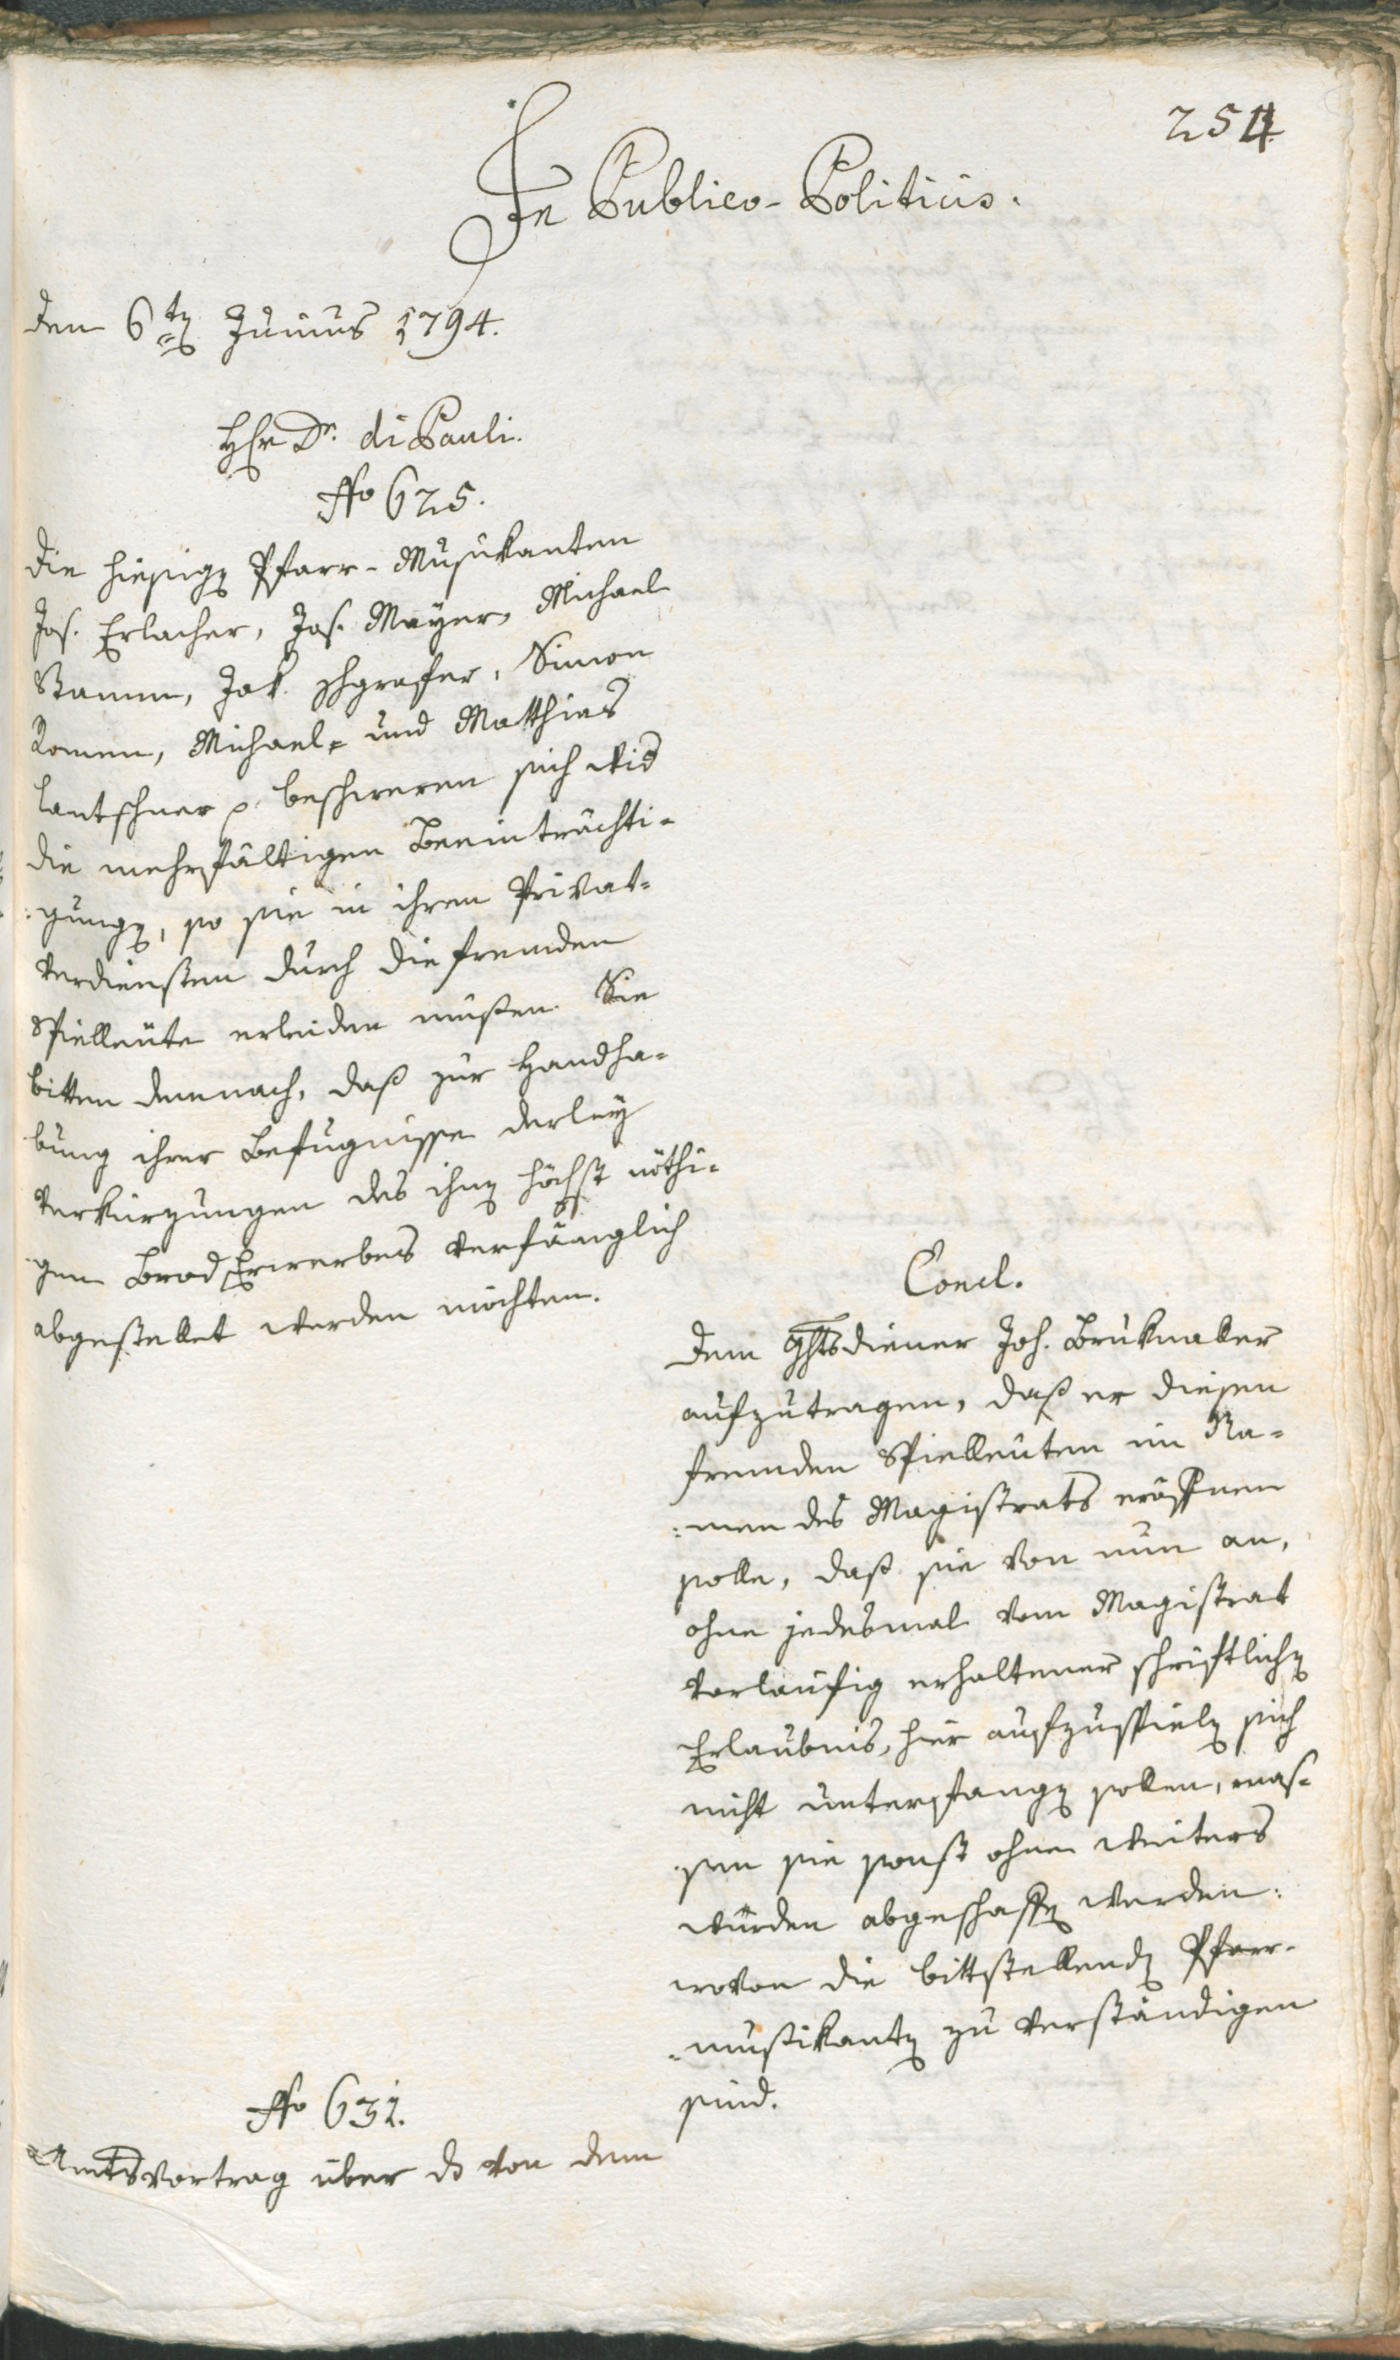 254
In Publico-Politicis.
den 6ten Junius 1794.
Herr Dr. di Pauli.
No 625.
Die hiesigen Pfarr-Musikanten
Jos. Erlacher, Jos. Mayer, Michael
Stamm, Jak. Zchgraser, Simon
Romen, Michael- und Matthias
Lantschner beschweren sich wid
die mehrfältigen Beeinträchti-
gungen, so sie in ihren Privat-
verdiensten durch die fremden
Spielleute erleiden müßen. Sie
bitten demnach, daß zur Handha-
bung ihrer Befugnisse derley
Verkürzungen des ihnen höchst nöthi-
gen Brod Erwerbes verfänglich
abgestellet werden möchten.
Concl.
Dem Ghtsdiener Joh. Brukmaller
aufzutragen, daß er diesen
fremden Spielleuten im Na-
men des Magistrats eröffnen
solle, daß sie von nun an,
ohne jedesmal vom Magistrat
vorläufig erhaltener schriftlichen
Erlaubnis, hier aufzuspielen sich
nicht unterfangen sollen, mas-
sen sie sonst ohne weiters
würden abgeschaffen werden:
wovon die bittstellenden Pfarr-
musikanten zu verständigen
sind.
No 632.
Amtsvortrag über die von dem